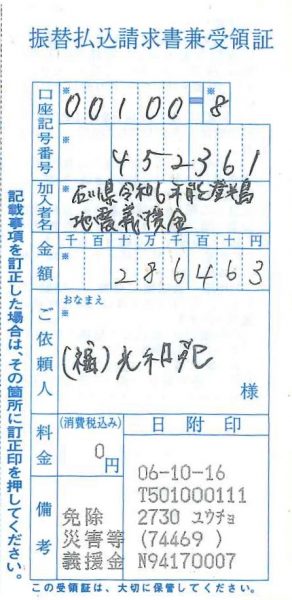 振替払込請求書兼受領証
口座記号番号
※ 00100-※8
※ 452361
加入者名
※ 石川県令和6年能登半島
地震義援金
金額
千百十万千百十円
※ 286463
ご依頼人
おなまえ
※
(福)光和
様
料金
(消費税込み)
0円
日附印
06-10-16
T501000111
2730 ユウチョ
(74469)
N94170007
備考
免除
災害等
義援金
記載事項を訂正した場合は、その箇所に訂正印を押してください。
この受領証は、大切に保管してください。